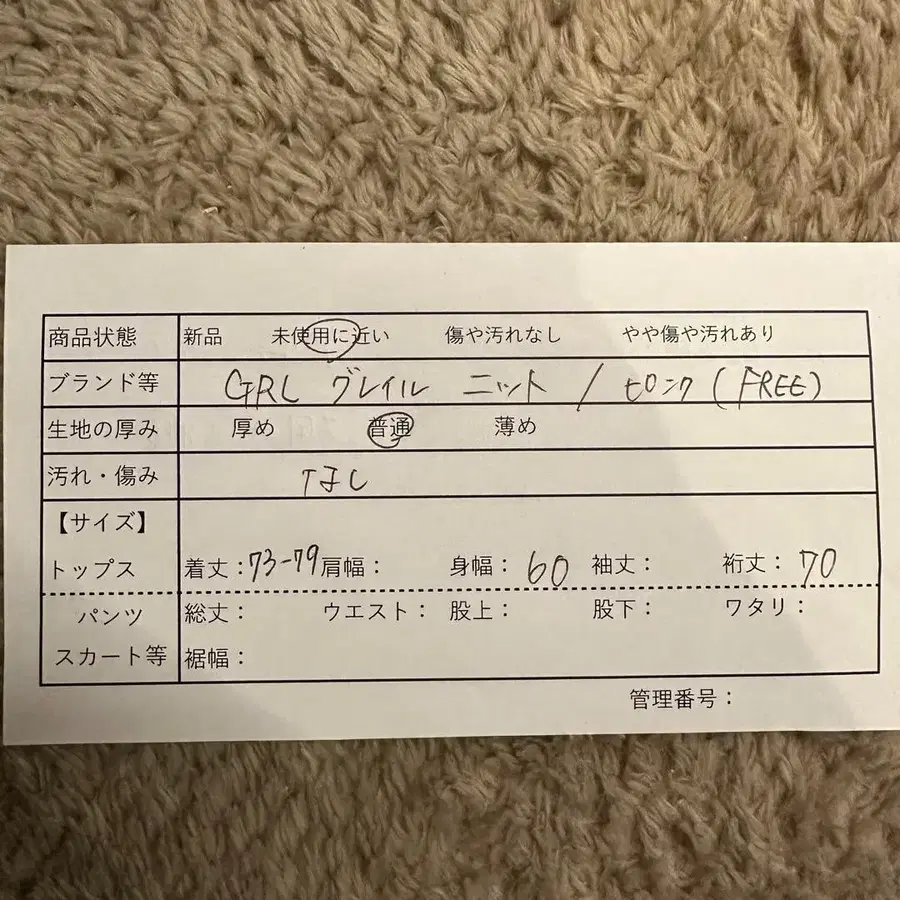 商品状態 新品 未使用に近い 傷や汚れなし やや傷や汚れあり
ブランド等 GRL グレイル ニット / ピンク (FREE)
生地の厚み 厚め 普通 薄め
汚れ・傷み なし
【サイズ】
トップス 着丈：73-79 肩幅： 身幅：60 袖丈： 裄丈：70
パンツ 総丈： ウエスト： 股上： 股下： ワタリ：
スカート等 裾幅：
管理番号：